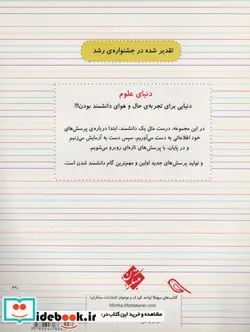 تقدیر شده در جشنواره‌ی رشد
دنیای علوم
دنیایی برای تجربه‌ی حال و هوای دانشمند بودن!!!
در این مجموعه، درست مثل یک دانشمند، ابتدا درباره‌ی پرسش‌های
خود اطلاعاتی به دست می‌آوریم، سپس دست به آزمایش می‌زنیم
و در پایان، با پرسش‌های تازه‌ای روبرو می‌شویم.
و تولید پرسش‌های جدید اولین و مهم‌ترین گام دانشمند شدن است.
مبتکران
کتاب‌های میچکا (واحد کودک و نوجوان انتشارات مبتکران)
مشاهده و خرید این کتاب در:
ایران کتاب